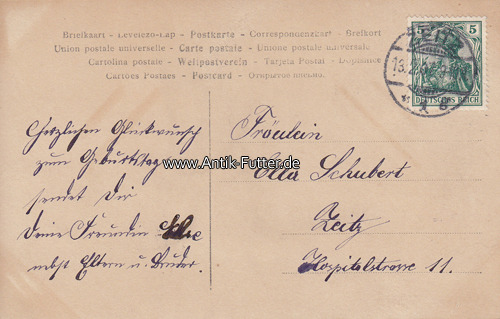 Briefkaart - Levelezö-Lap - Postkarte - Correspondenzkart - Brefkort
Union postale universelle - Carte postale - Unione postale universale
Cartolina postale - Weltpostverein - Tarjeta Postal - Dopisnice
Cartões Postaes - Postcard -
5
DEUTSCHES REICH
ZEITZ
Herzlichen Glückwunsch
zum Geburtstag
sendet Dir
Deine Freundin Else
nebst Eltern u. Bruder.
www.Antik-Futter.de
Fräulein
Ella Schubert
Zeitz
Hospitalstrasse 11.